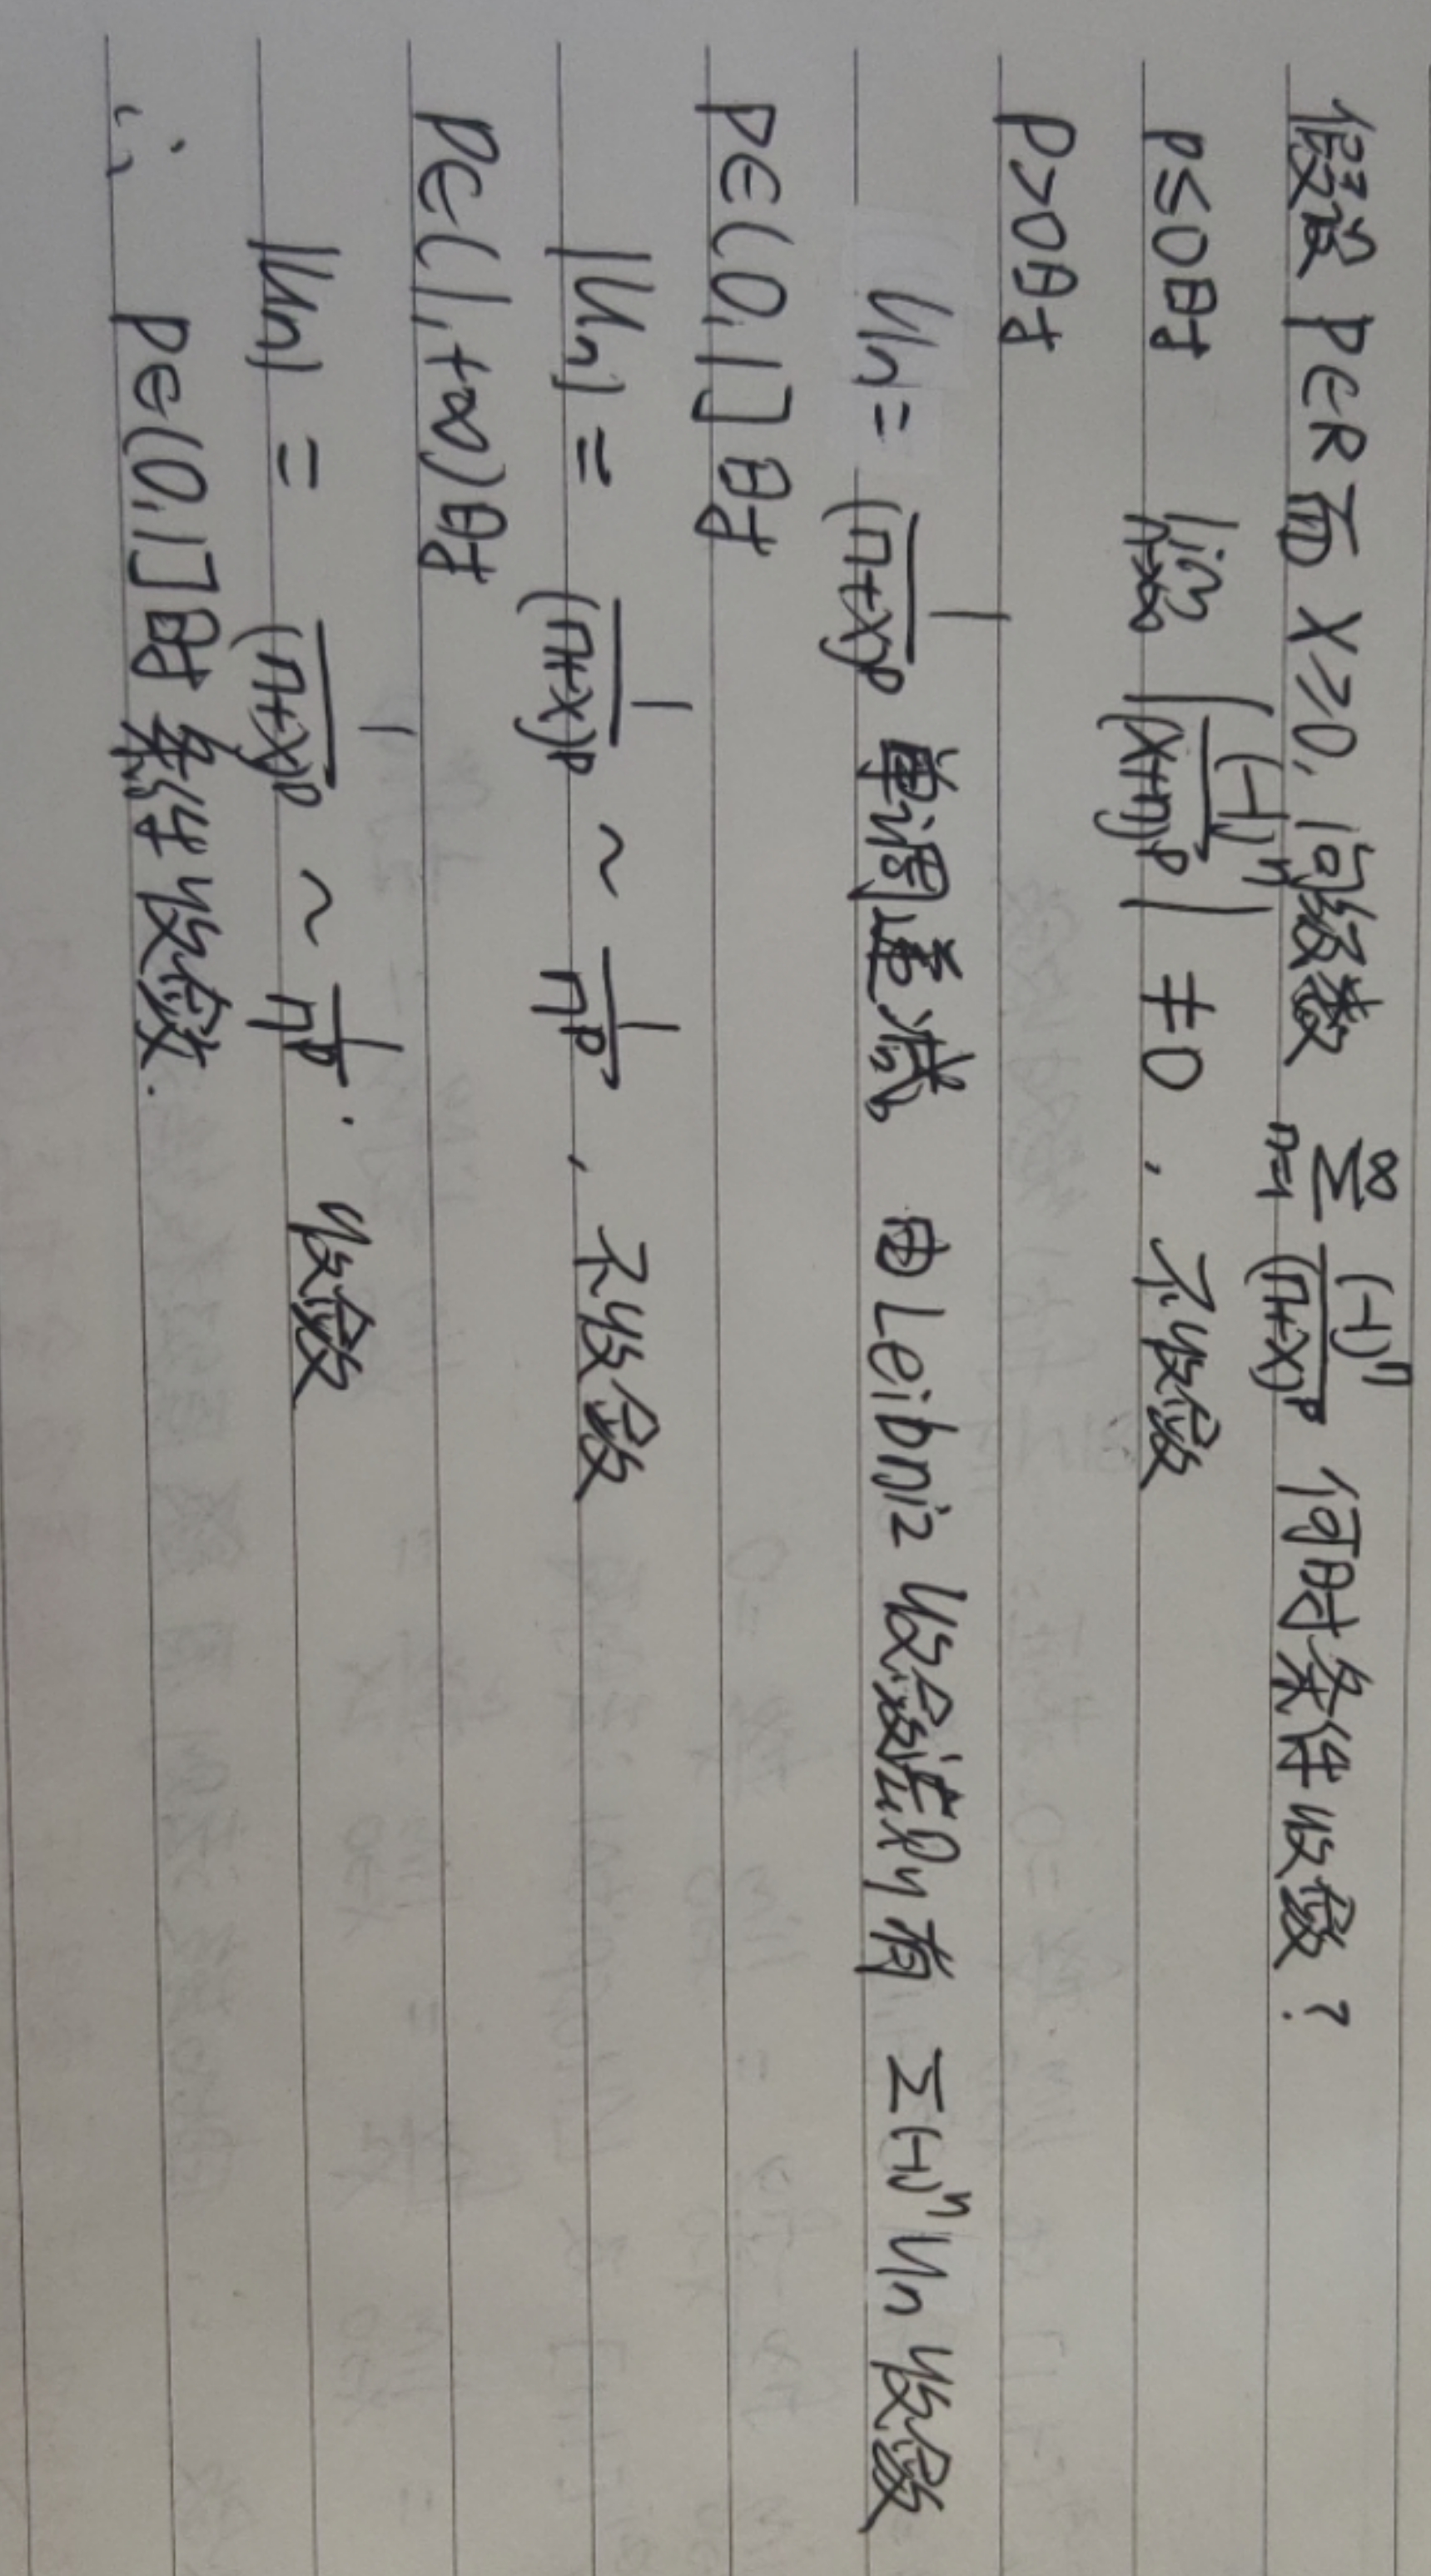 假设 P∈R 而 X≥0, 问级数 ∑_{n=1}^{∞} (-1)^n/(n+x)^p 何时条件收敛?
p≤0时 lim_{n→∞} |(-1)^n/(x+n)^p| ≠0 , 不收敛
P>0时
Un= 1/(n+x)^p 单调递减。由Leibniz 收敛法则有 Σ(-1)^n Un 收敛
P∈(0,1]时
|Un| = 1/(n+x)^p ~ 1/n^p , 不收敛
P∈(1,+∞)时
|Un| = 1/(n+x)^p ~ 1/n^p . 收敛
∴ P∈(0,1]时条件收敛.